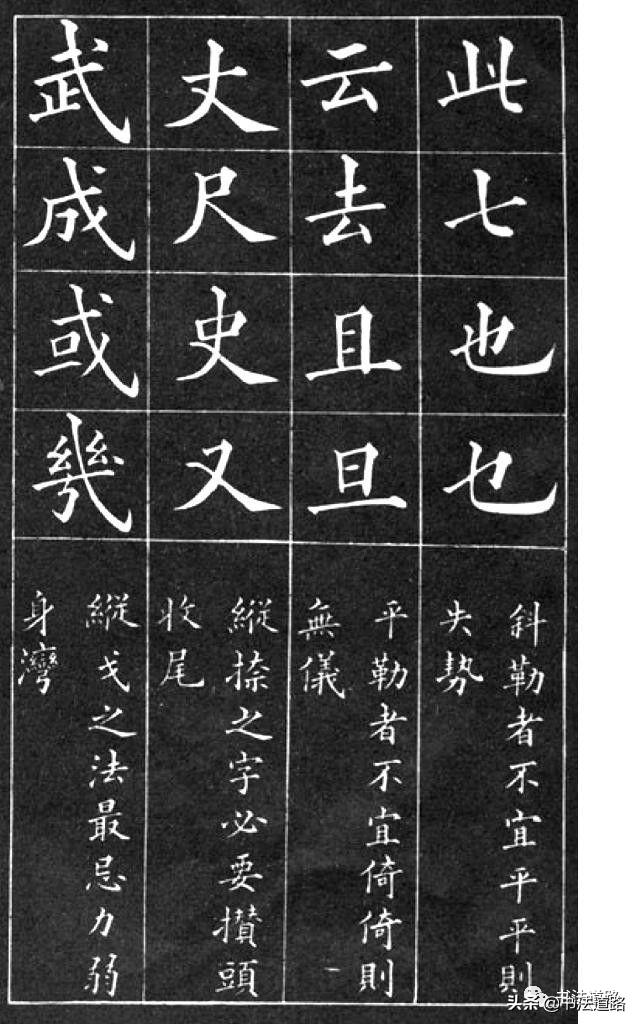 此七也乜
斜勒者不宜平平則
失勢
云去且旦
平勒者不宜倚倚則
無儀
丈尺史又
縱捺之字必要攢頭
收尾
武成或幾
縱戈之法最忌力弱
身灣
书法道路
头条 @书法道路